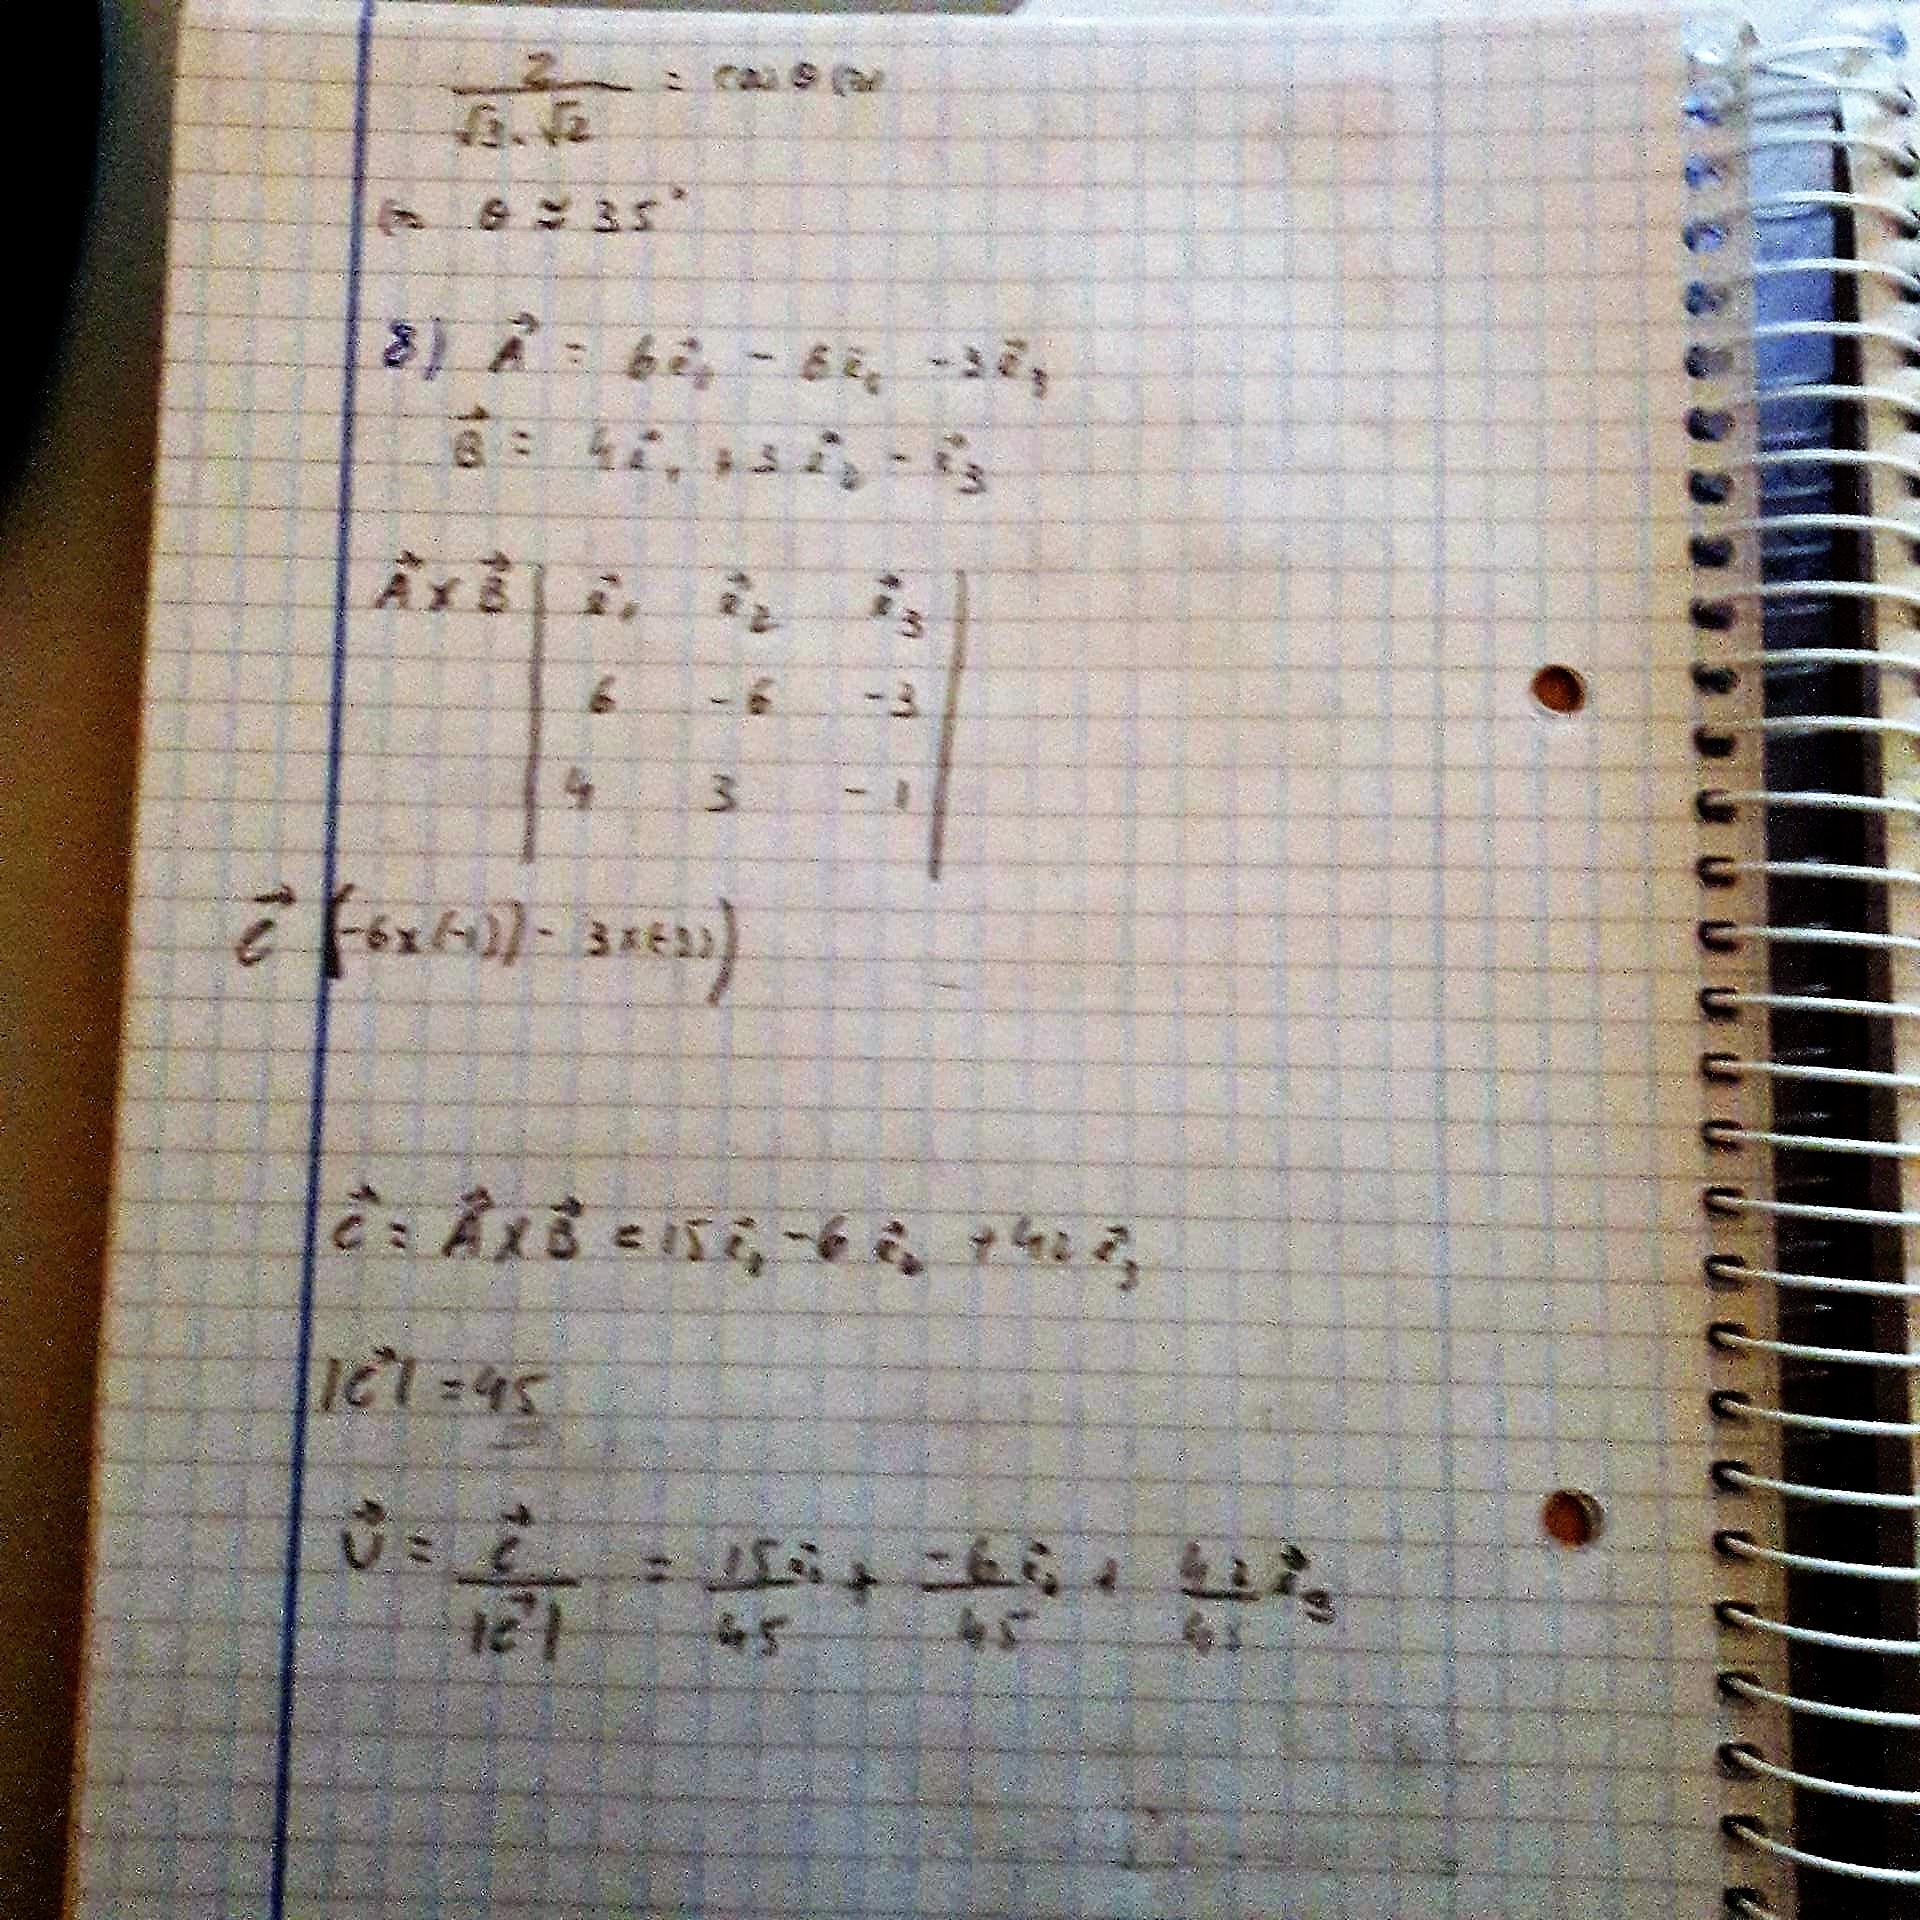 2/(√3 · √2) = cos θ (=)
(=) θ ≈ 35°
8) A⃗ = 6e⃗₁ - 6e⃗₂ - 3e⃗₃
B⃗ = 4e⃗₁ + 3e⃗₂ - e⃗₃
A⃗ x B⃗ | e⃗₁ e⃗₂ e⃗₃ |
6 -6 -3
4 3 -1
C⃗ (-6x(-1)) - 3x(-3))
C⃗ = A⃗ x B⃗ = 15e⃗₁ - 6e⃗₂ + 42e⃗₃
|C⃗| = 45
U⃗ = C⃗/|C⃗| = 15e⃗₁/45 + -6e⃗₂/45 + 42e⃗₃/45